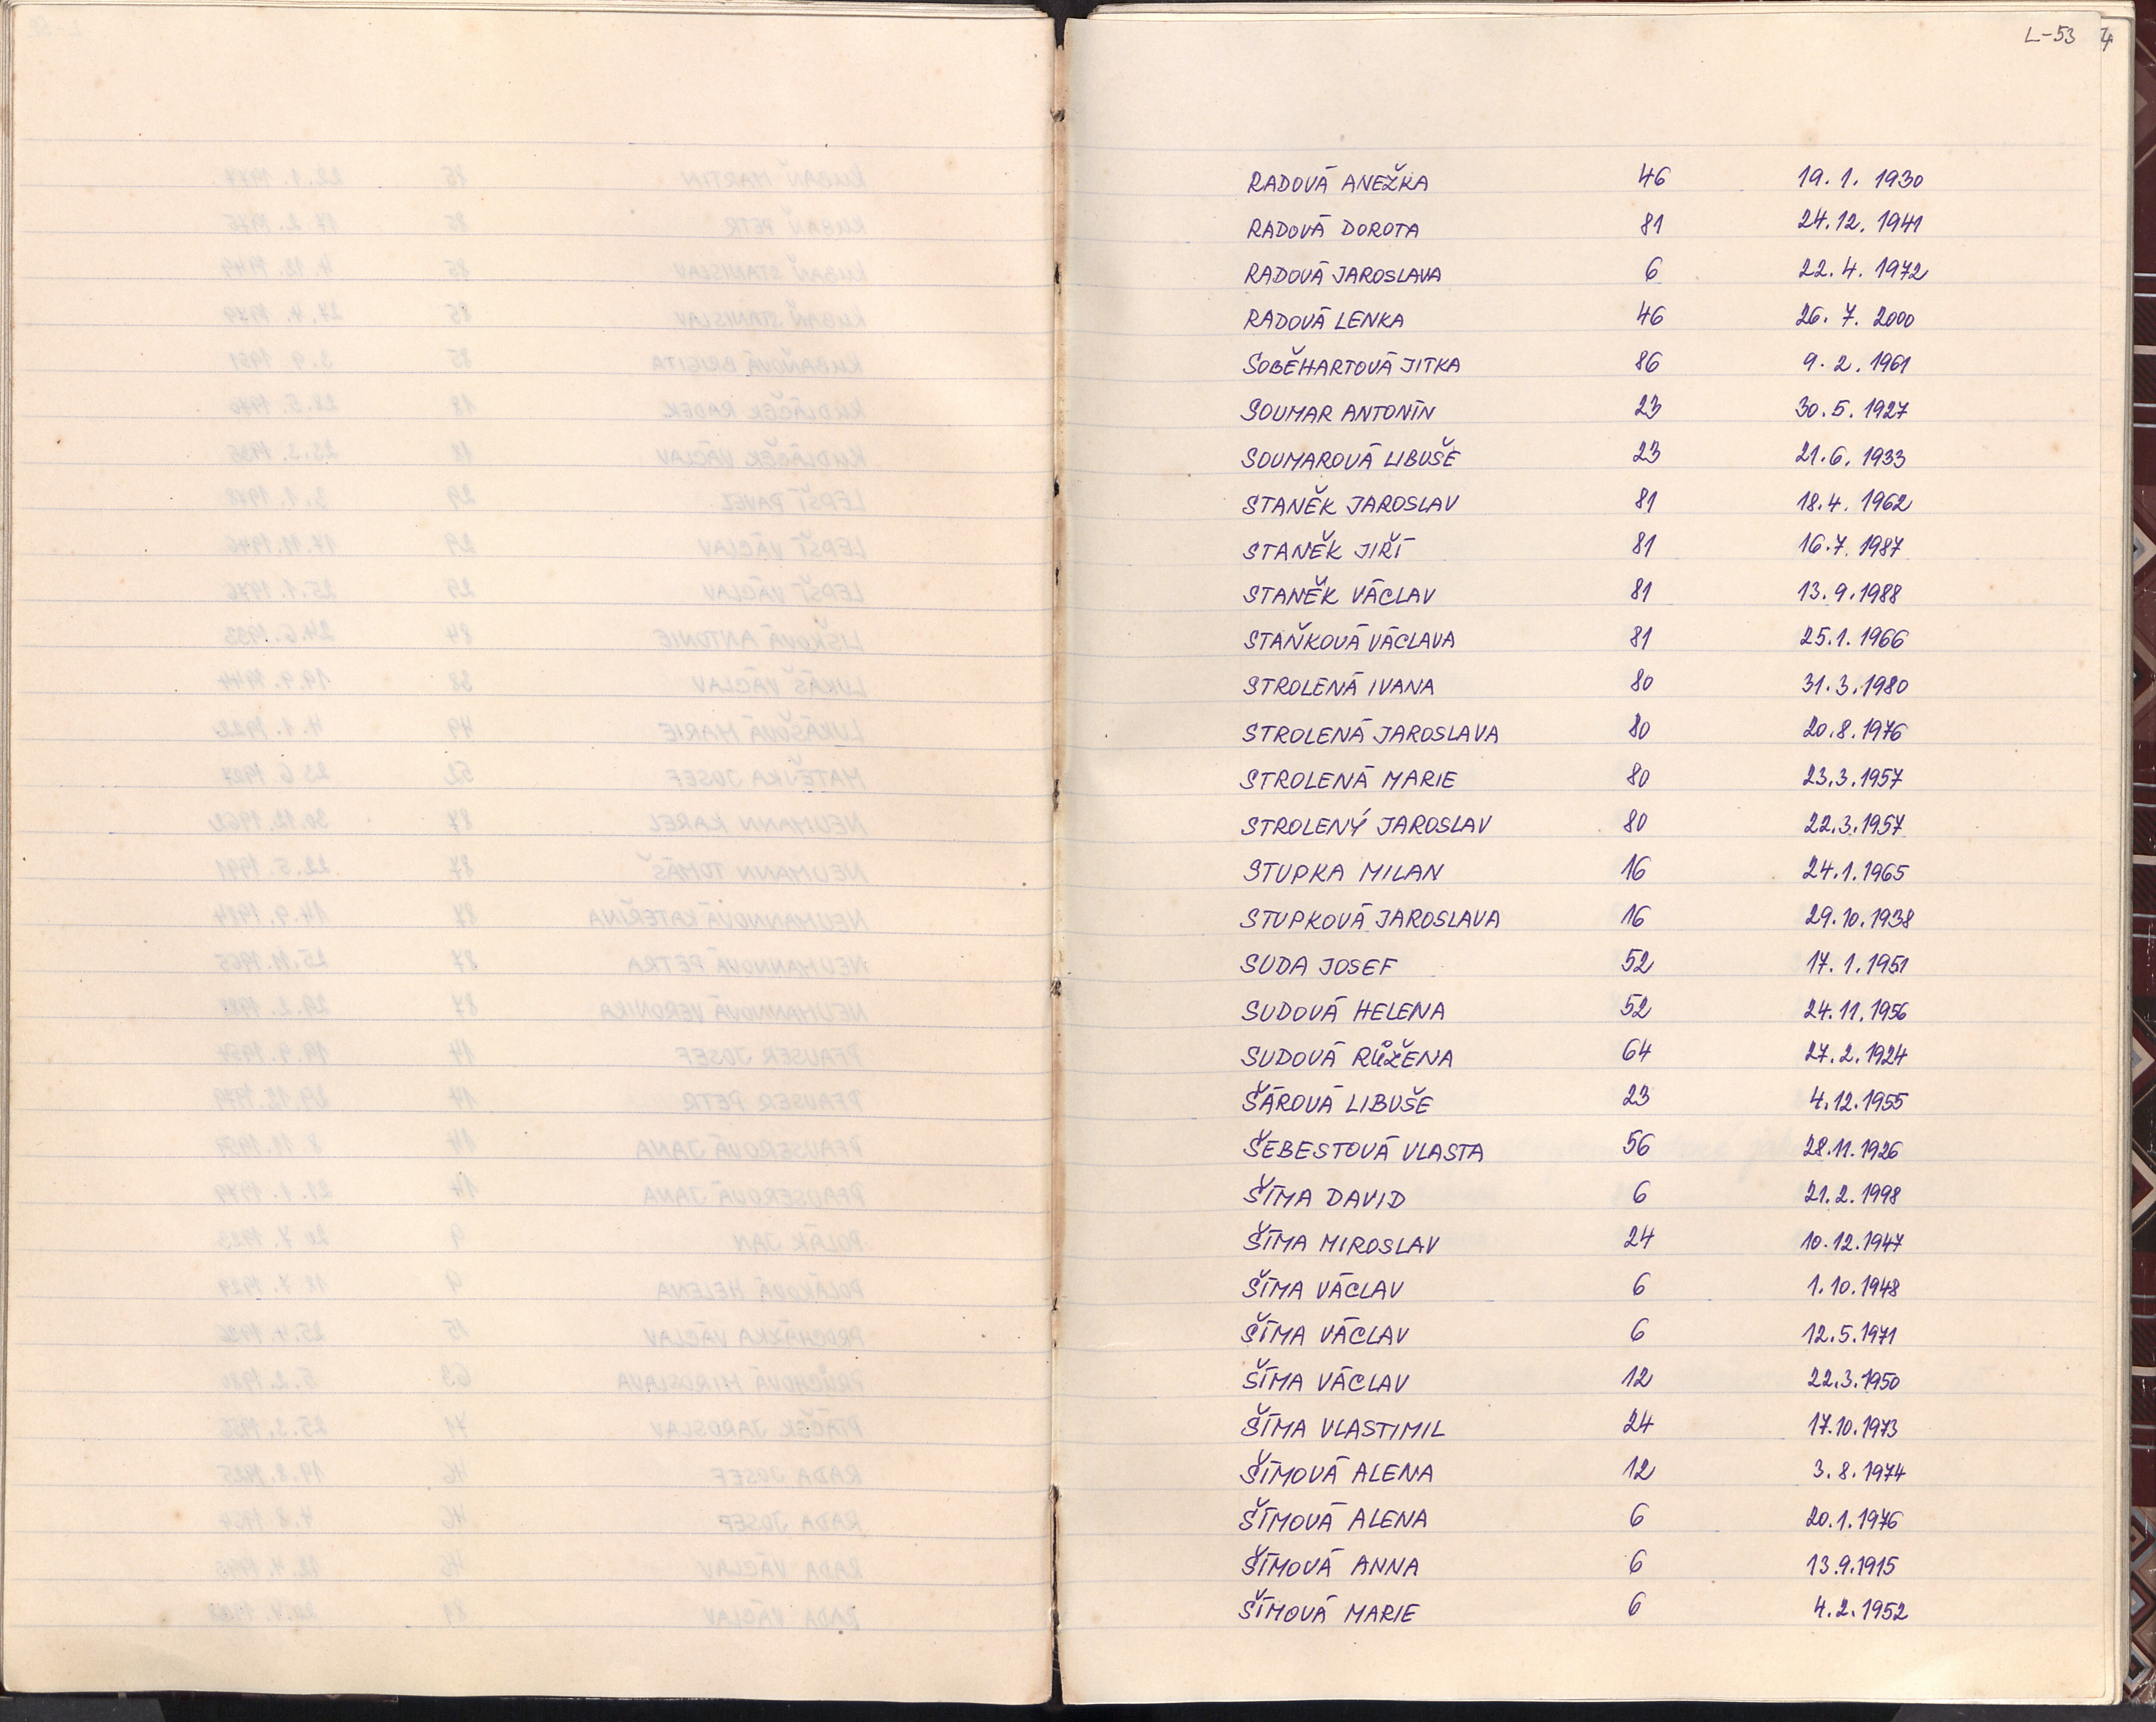 L-53 4
RADOVÁ ANEŽKA 46 19. 1. 1930
RADOVÁ DOROTA 81 24. 12. 1941
RADOVÁ JAROSLAVA 6 22. 4. 1972
RADOVÁ LENKA 46 26. 7. 2000
SOBĚHARTOVÁ JITKA 86 9. 2. 1961
SOUMAR ANTONÍN 23 30. 5. 1927
SOUMAROVÁ LIBUŠE 23 21. 6. 1933
STANĚK JAROSLAV 81 18. 4. 1962
STANĚK JIŘÍ 81 16. 7. 1987
STANĚK VÁCLAV 81 13. 9. 1988
STAŇKOVÁ VÁCLAVA 81 25. 1. 1966
STROLENÁ IVANA 80 31. 3. 1980
STROLENÁ JAROSLAVA 80 20. 8. 1976
STROLENÁ MARIE 80 23. 3. 1957
STROLENÝ JAROSLAV 80 22. 3. 1957
STUPKA MILAN 16 24. 1. 1965
STUPKOVÁ JAROSLAVA 16 29. 10. 1938
SUDA JOSEF 52 17. 1. 1951
SUDOVÁ HELENA 52 24. 11. 1956
SUDOVÁ RŮŽENA 64 27. 2. 1924
ŠÁROVÁ LIBUŠE 23 4. 12. 1955
ŠEBESTOVÁ VLASTA 56 28. 11. 1926
ŠÍMA DAVID 6 21. 2. 1998
ŠÍMA MIROSLAV 24 10. 12. 1947
ŠÍMA VÁCLAV 6 1. 10. 1948
ŠÍMA VÁCLAV 6 12. 5. 1971
ŠÍMA VÁCLAV 12 22. 3. 1950
ŠÍMA VLASTIMIL 24 17. 10. 1973
ŠÍMOVÁ ALENA 12 3. 8. 1974
ŠÍMOVÁ ALENA 6 20. 1. 1976
ŠÍMOVÁ ANNA 6 13. 9. 1915
ŠÍMOVÁ MARIE 6 4. 2. 1952